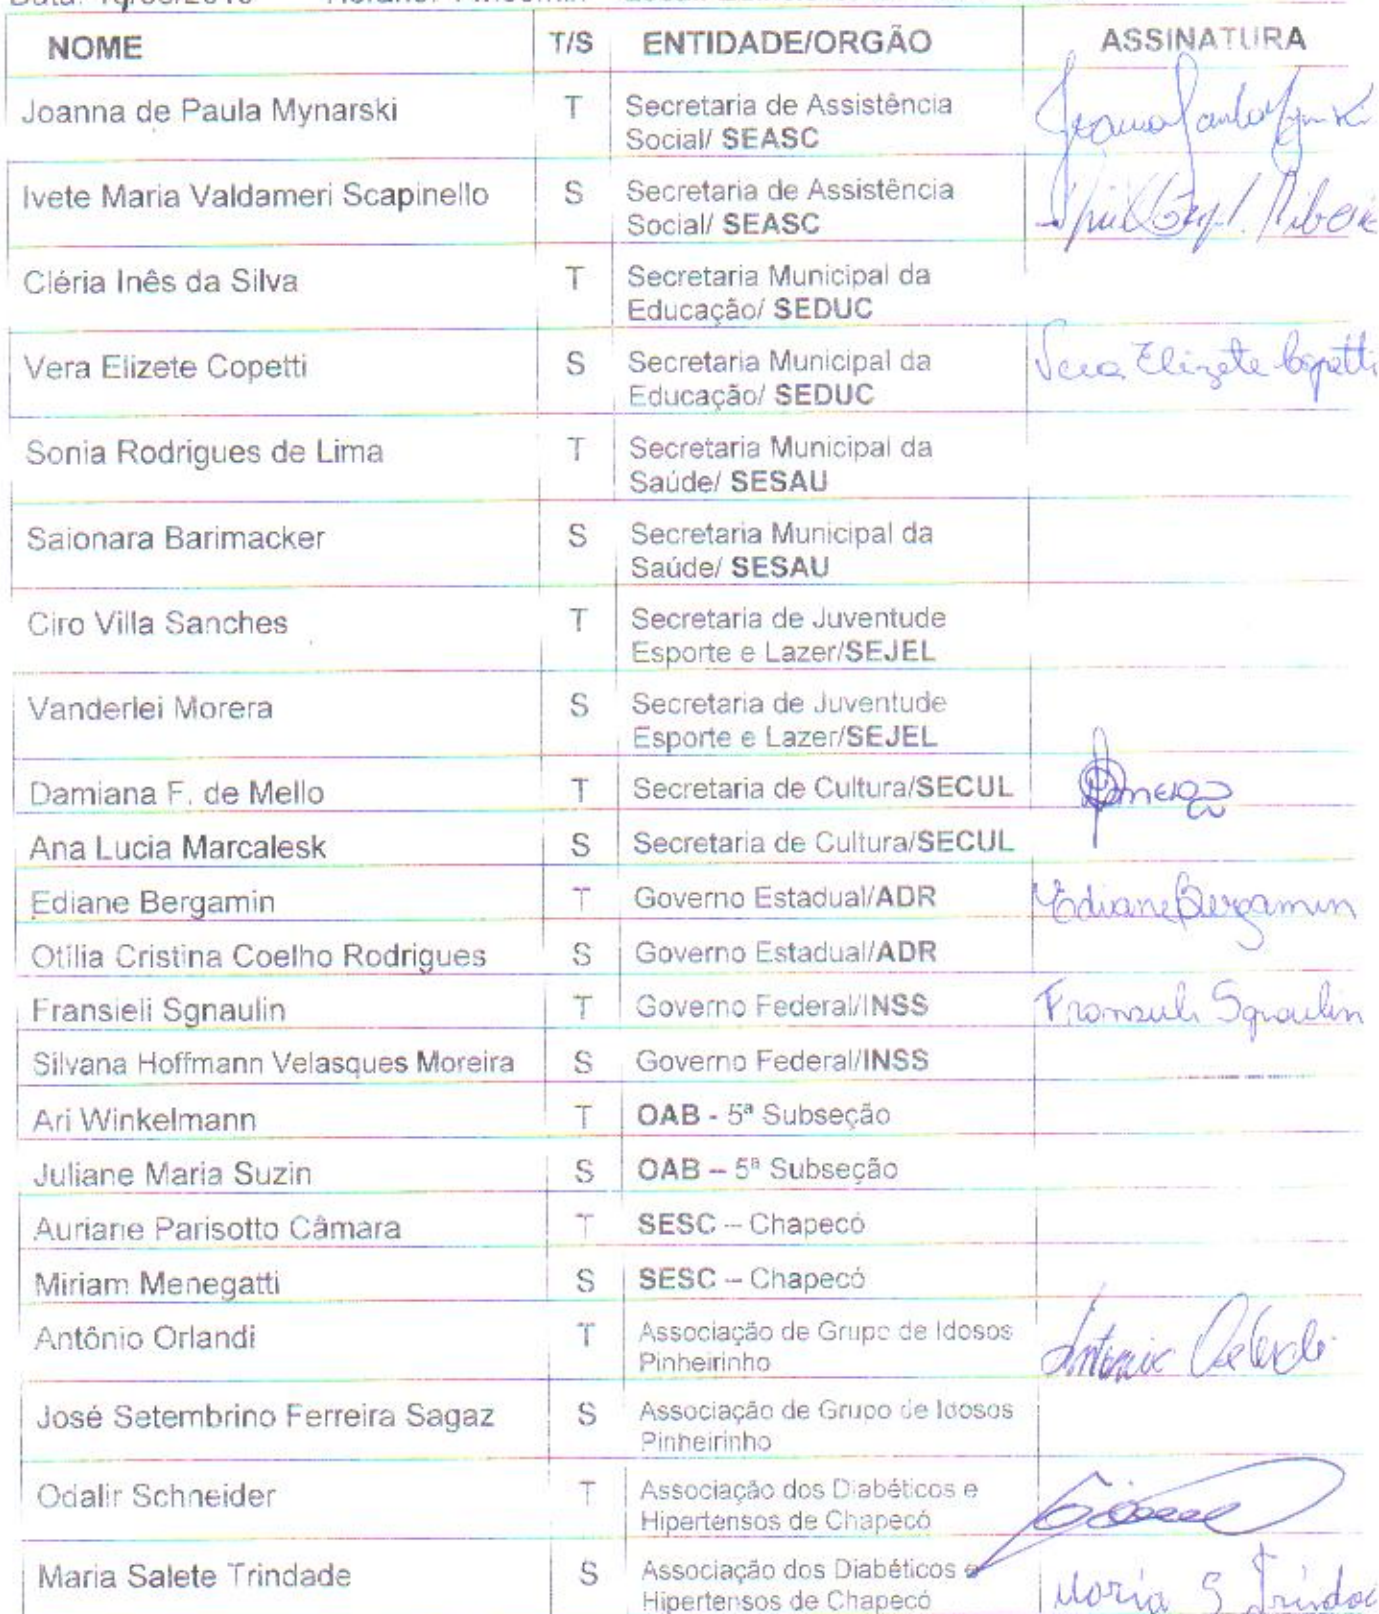 NOME T/S ENTIDADE/ORGÃO ASSINATURA
Joanna de Paula Mynarski T Secretaria de Assistência
Social/ SEASC
Ivete Maria Valdameri Scapinello S Secretaria de Assistência
Social/ SEASC
Cléria Inês da Silva T Secretaria Municipal da
Educação/ SEDUC
Vera Elizete Copetti S Secretaria Municipal da Vera Elizete Copetti
Educação/ SEDUC
Sonia Rodrigues de Lima T Secretaria Municipal da
Saúde/ SESAU
Saionara Barimacker S Secretaria Municipal da
Saúde/ SESAU
Ciro Villa Sanches T Secretaria de Juventude
Esporte e Lazer/SEJEL
Vanderlei Morera S Secretaria de Juventude
Esporte e Lazer/SEJEL
Damiana F. de Mello T Secretaria de Cultura/SECUL
Ana Lucia Marcalesk S Secretaria de Cultura/SECUL
Ediane Bergamin T Governo Estadual/ADR Ediane Bergamin
Otília Cristina Coelho Rodrigues S Governo Estadual/ADR
Fransieli Sgnaulin T Governo Federal/INSS Fransieli Sgnaulin
Silvana Hoffmann Velasques Moreira S Governo Federal/INSS
Ari Winkelmann T OAB - 5ª Subseção
Juliane Maria Suzin S OAB – 5ª Subseção
Auriane Parisotto Câmara T SESC – Chapecó
Miriam Menegatti S SESC – Chapecó
Antônio Orlandi T Associação de Grupo de Idosos Antonio Orlandi
Pinheirinho
José Setembrino Ferreira Sagaz S Associação de Grupo de Idosos
Pinheirinho
Odalir Schneider T Associação dos Diabéticos e
Hipertensos de Chapecó
Maria Salete Trindade S Associação dos Diabéticos e Maria S
Hipertensos de Chapecó